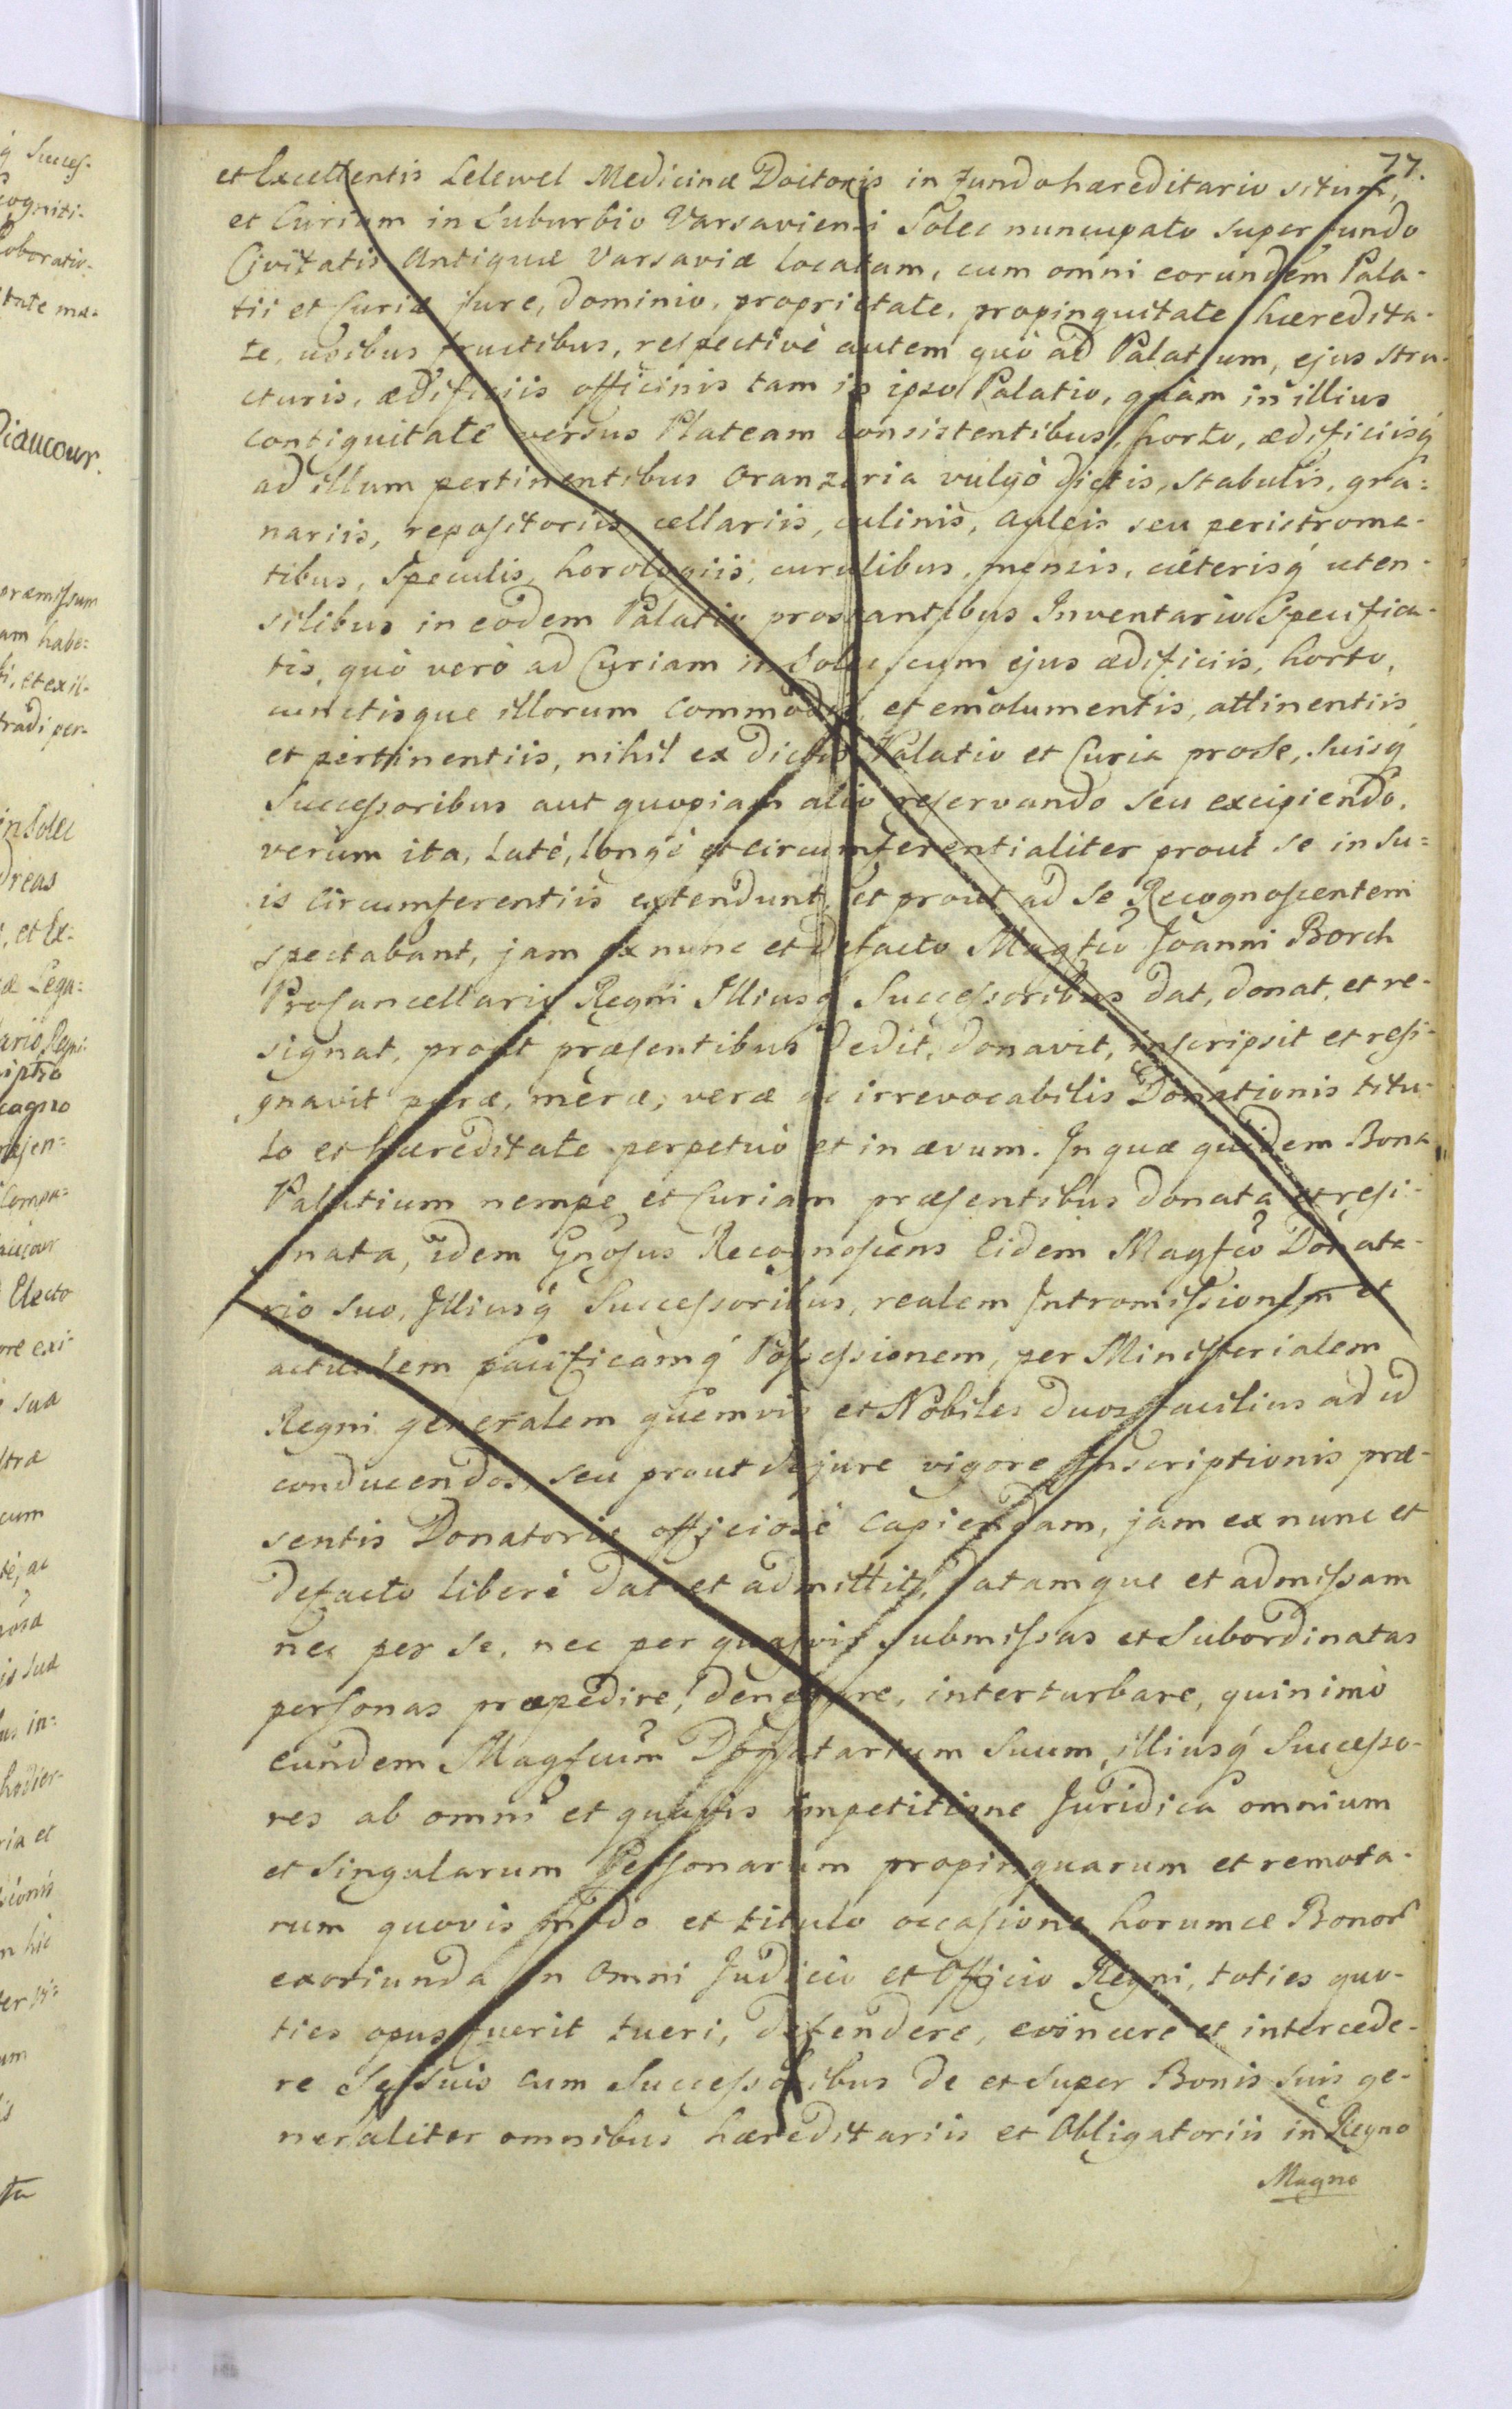 77.
et Excellentis Lelewel Medicinæ Doctoris in fundo hæreditario situm,
et Curiam in Suburbio Varsaviensi Solec nuncupato super fundo
Civitatis Antiquæ Varsaviæ locatam, cum omni eorundem Pala-
tii et Curiæ jure, dominio, proprietate, propinquitate hæredita-
te, usibus fructibus, respectivè autem quò ad Palatium, ejus stru-
cturis, ædificiis officinis tam in ipso Palatio, quàm in illius
contiguitate versus Plateam consistentibus, horto, ædificiisq́
ad illum pertinentibus Oranzeria vulgò dictis, stabulis, gra=
nariis, repositoriis cellariis, culinis, Auleis seu peristroma-
tibus, Speculis, horologiis, curulibus, mensis, cæterisq́ uten-
silibus in eodem Palatio prostantibus Inventario Specifica-
tis, quò verò ad Curiam in Solec, cum ejus ædificiis, horto,
cunctisque illorum commodis, et emolumentis, attinentiis
et pertinentiis, nihil ex dictis Palatio et Curia pro se, Suisq́
Successoribus aut quopiam alio reservando seu excipiendo,
verùm ita, latè, longè et circumferentialiter prout se in Su=
is Circumferentiis extendunt, et prout ad Se Recognoscentem
spectabant, jam ex nunc et defacto Magfco Joanni Borch
Procancellario Regni Illiusq́ Successoribus dat, donat, et re-
signat, prout præsentibus dedit, donavit, inscripsit et resi-
gnavit puræ, meræ, veræ ac irrevocabilis Donationis titu-
lo et hæreditate perpetuò et in ævum. In quæ quidem Bona
Palatium nempe et Curiam præsentibus donata et resi-
gnata, idem Gnosus Recognoscens Eidem Magfco Donata-
rio suo, Illiusq́ Successoribus, realem Intromissionem et
actualem pacificamq́ Possessionem, per Ministerialem
Regni generalem quemvis et Nobiles duos facilius ad id
conducendos, seu prout de jure vigore Inscriptionis præ-
sentis Donatoriæ officiosè capiendam, jam ex nunc et
defacto liberè dat et admittit, datamque et admissam
nec per se, nec per quasvis submissas et subordinatas
personas præpedire, denegare, interturbare, quinimò
eundem Magfcum Donatarium Suum, illiusq́ Successo-
res ab omni et quavis impetitione Juridica omnium
et singularum Personarum propinquarum et remota-
rum quovis modo et titulo occasione horumce Bonor̃
exoriunda in omni Judicio et Officio Regni, toties quo-
ties opus fuerit tueri, defendere, evincere et intercede-
re Se suis cum Successoribus de et super Bonis suis ge-
neraliter omnibus hæreditariis et Obligatoriis in Regno
Magno